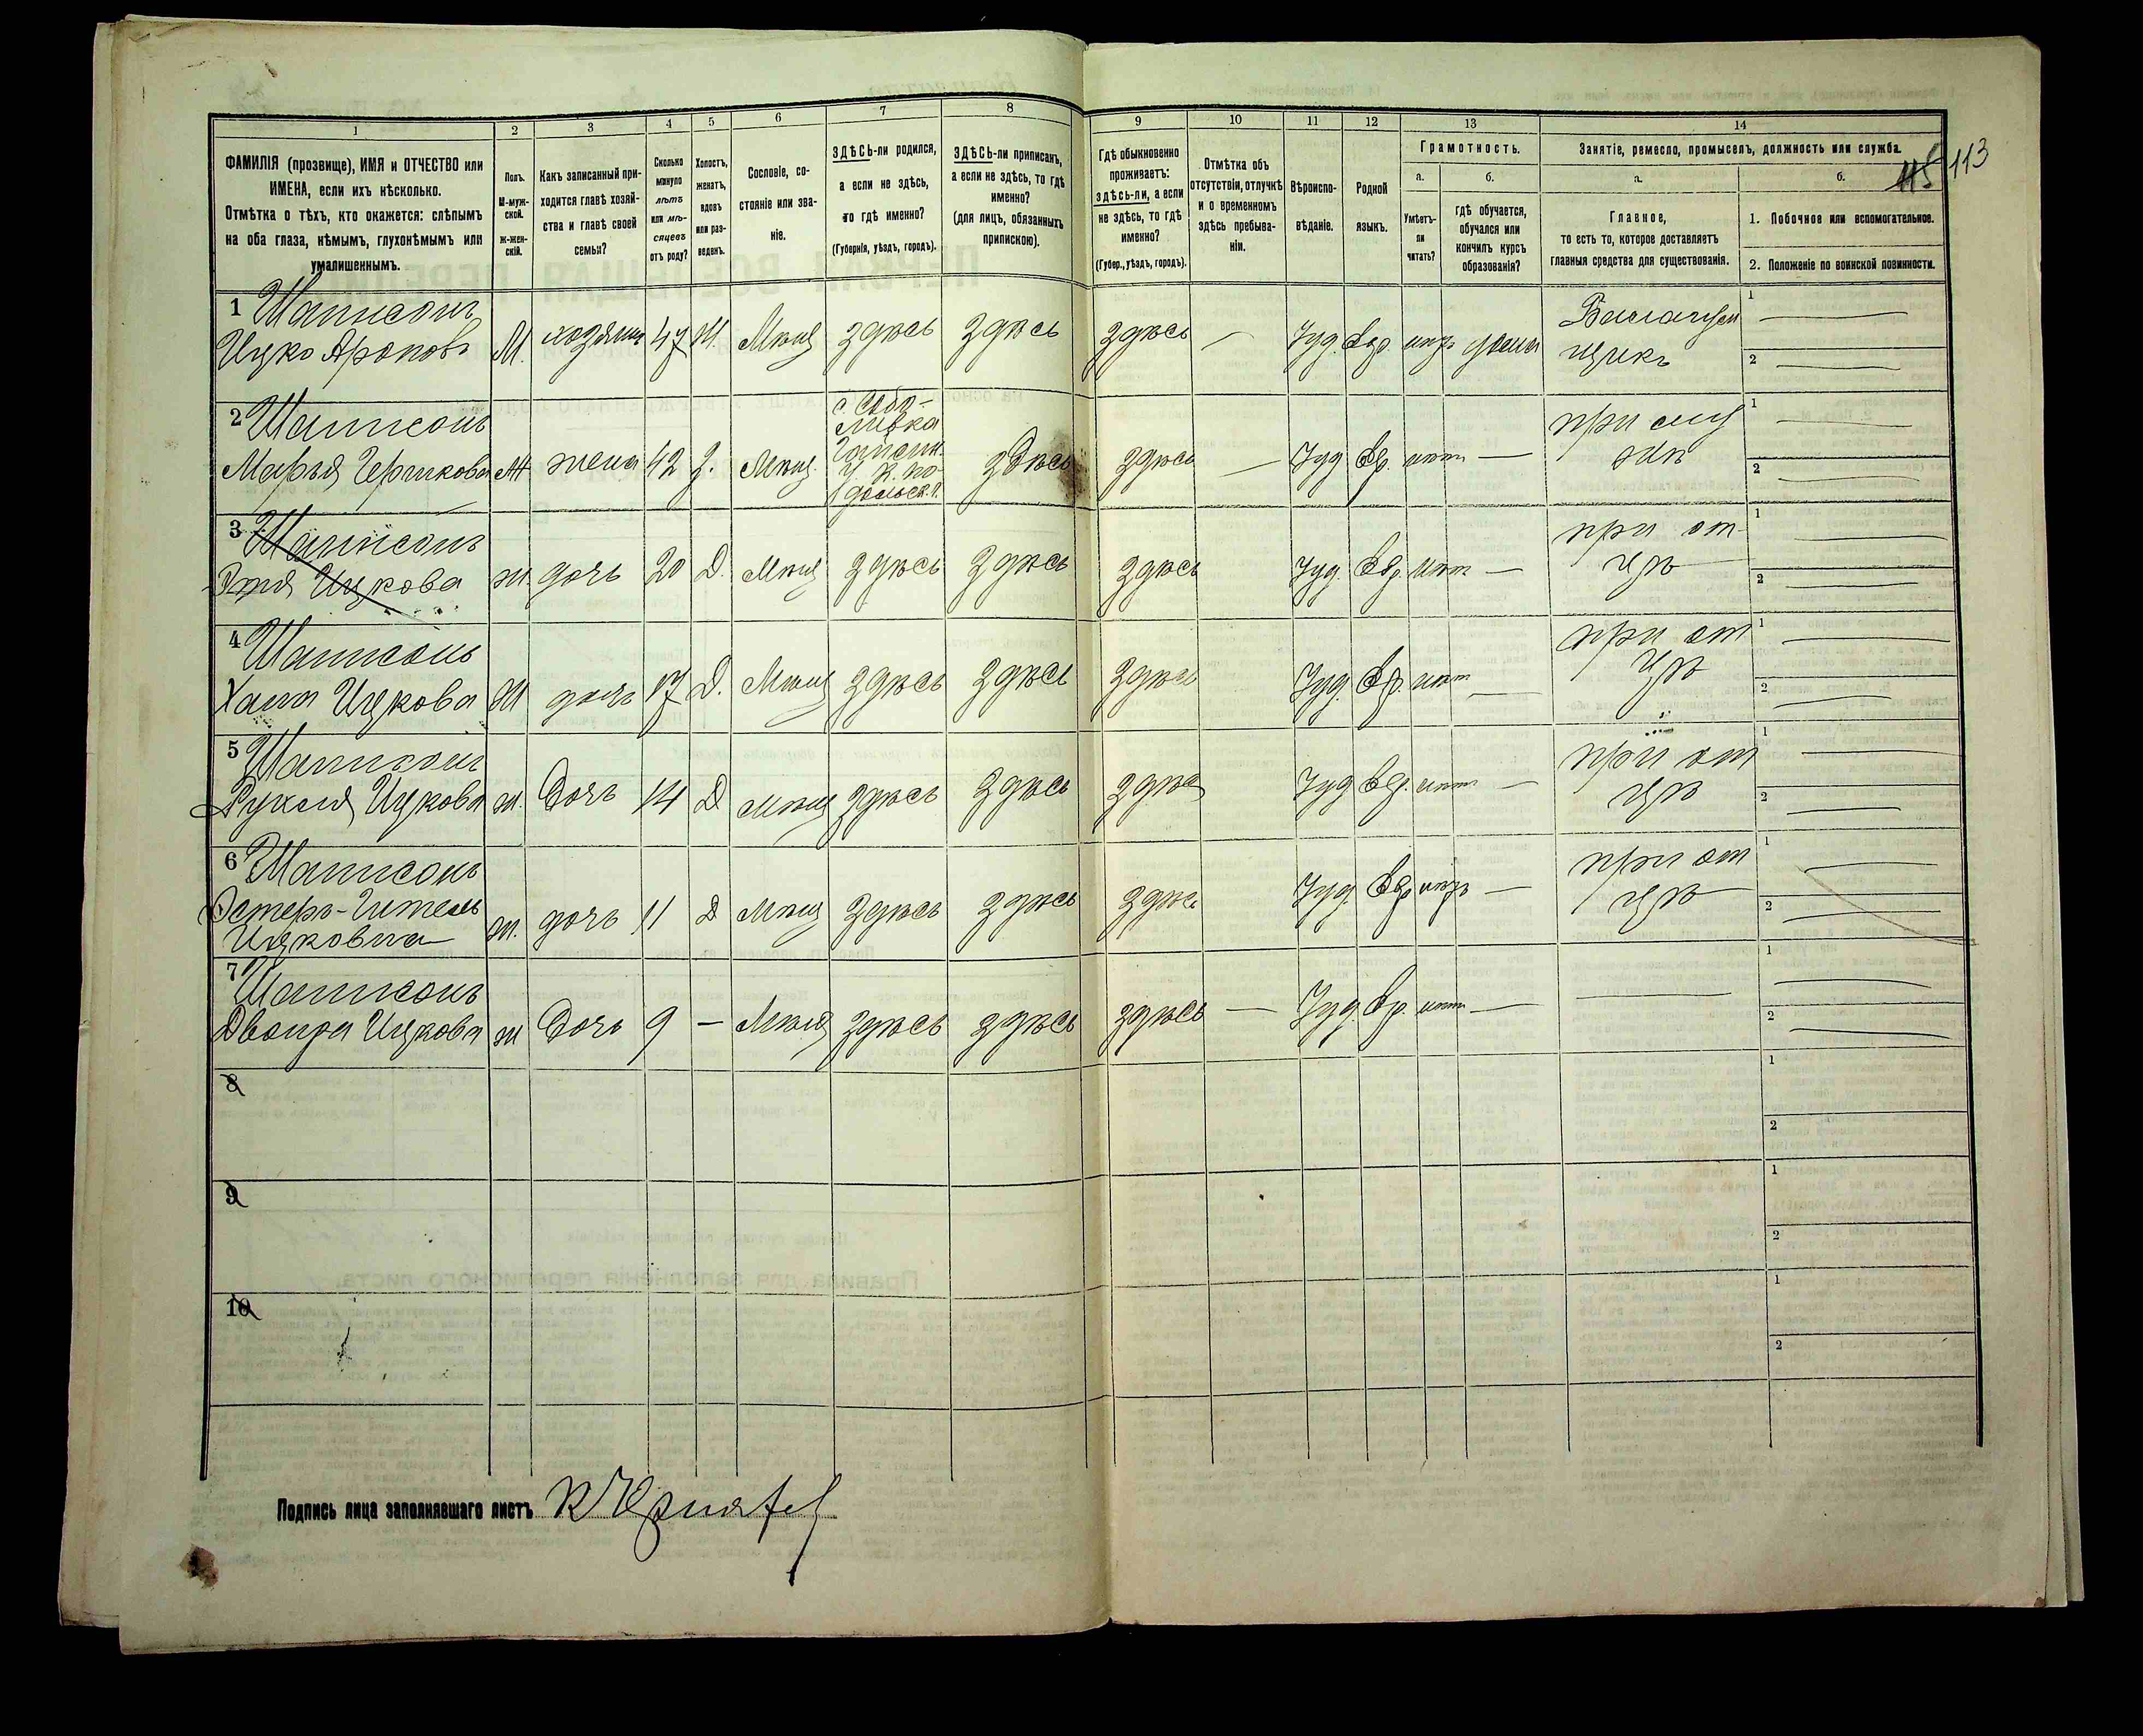 1 2 3 4 5 6 7 8 9 10 11 12 13 14
ФАМИЛІЯ (прозвище), ИМЯ и ОТЧЕСТВО или
ИМЕНА, если ихъ нѣсколько.
Отмѣтка о тѣхъ, кто окажется: слѣпымъ
на оба глаза, нѣмымъ, глухонѣмымъ или
умалишеннымъ.
Полъ.
М-муж-
ской.
ж-жен-
скій.
Какъ записанный при-
ходится главѣ хозяй-
ства и главѣ своей
семьи?
Сколько
минуло
лѣтъ
или мѣ-
сяцевъ
отъ роду?
Холостъ,
женатъ,
вдовъ
или раз-
веденъ.
Сословіе, со-
стояніе или зва-
ніе.
ЗДѢСЬ-ли родился,
а если не здѣсь,
то гдѣ именно?
(Губернія, уѣздъ, городъ).
ЗДѢСЬ-ли приписанъ,
а если не здѣсь, то гдѣ
именно?
(для лицъ, обязанныхъ
припискою).
Гдѣ обыкновенно
проживаетъ:
здѣсь-ли, а если
не здѣсь, то гдѣ
именно?
(Губер., уѣздъ, городъ).
Отмѣтка объ
отсутствіи, отлучкѣ
и о временномъ
здѣсь пребыва-
ніи.
Вѣроиспо-
вѣданіе.
Родной
языкъ.
Грамотность.
а.
Умѣетъ-
ли
читать?
б.
Гдѣ обучается,
обучался или
кончилъ курсъ
образованія?
Занятіе, ремесло, промыселъ, должность или служба.
а.
Главное,
то есть то, которое доставляетъ
главныя средства для существованія.
б.
1. Побочное или вспомогательное.
2. Положеніе по воинской повинности.
115 113
1 Шаписонъ
Ицко Ароновъ М. хозяинъ 47 Ж. Мѣщ здѣсь здѣсь здѣсь — Іуд. Евр. дома
1
2
2 Шаписонъ
Марья Гершкова Ж жена 42 Мѣщ. здѣсь здѣсь — Іуд Евр. нѣт —
при му
жѣ
1
2
3 Шаписонъ
Этя Ицкова ж. дочь 20 Д. Мѣщ здѣсь здѣсь здѣсь Іуд. Евр. нѣт —
при от-
цѣ
1
2
4 Шаписонъ
Хана Ицкова Ж дочь 17 Д. Мѣщ здѣсь здѣсь здѣсь Іуд. Евр. нѣт —
при от
цѣ
1
2
5 Шаписонъ
Рукля Ицкова ж. Дочь 14 Д мѣщ здѣсь здѣсь здѣсь Іуд Евр. нѣт —
при от
цѣ
1
2
6 Шаписонъ
Эстеръ-Гитель
Ицковна ж. дочь 11 Д Мѣщ здѣсь здѣсь здѣсь Іуд. Евр —
при от
цѣ
1
2
7 Шаписонъ
Двойра Ицкова ж Дочь 9 — Мѣщ здѣсь здѣсь здѣсь — Іуд. Евр. нѣт —
1
2
8
1
2
9
1
2
10
1
2
Подпись лица заполнявшаго листъ